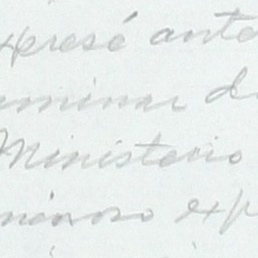 xpresé ante
eminar d
Ministerio
minoso exp